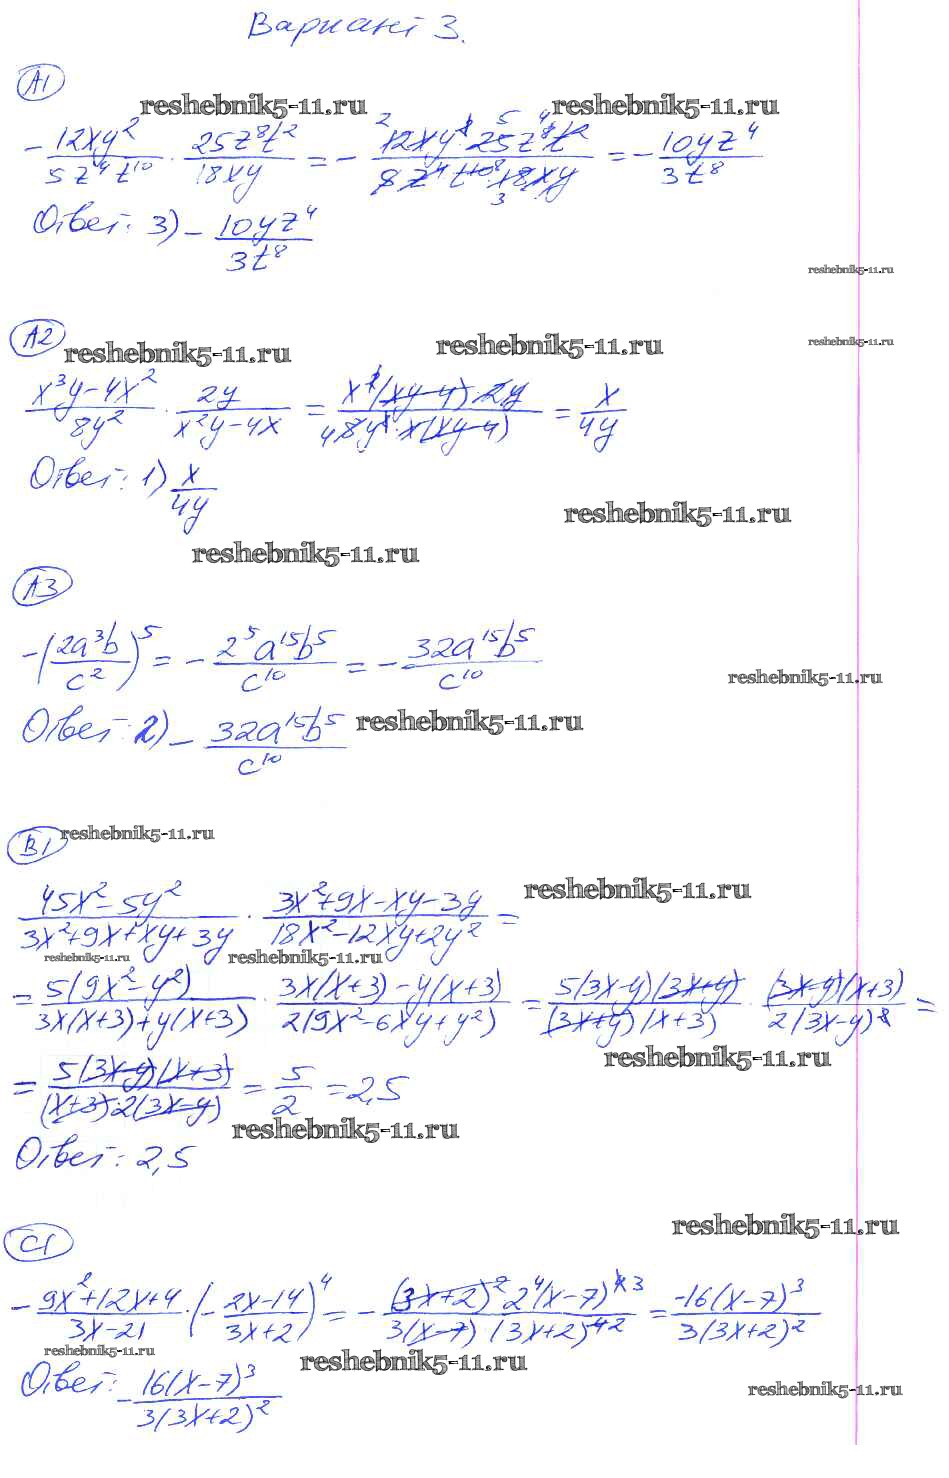 Вариант 3.
A1
reshebnik5-11.ru reshebnik5-11.ru
-12xy²/(5z⁴t¹⁰) · 25z⁸t²/(18xy) = -12xy² · 25z⁸t²/(5z⁴t¹⁰ · 18xy) = -10yz⁴/(3t⁸)
Ответ: 3) -10yz⁴/(3t⁸)
reshebnik5-11.ru
A2
reshebnik5-11.ru reshebnik5-11.ru reshebnik5-11.ru
(x³y-4x²)/(8y²) · 2y/(x²y-4x) = x²(xy-4) · 2y/(8y² · x(xy-4)) = x/(4y)
Ответ: 1) x/(4y)
reshebnik5-11.ru
reshebnik5-11.ru
A3
-(2a³b/c²)⁵ = -2⁵a¹⁵b⁵/c¹⁰ = -32a¹⁵b⁵/c¹⁰
reshebnik5-11.ru
Ответ: 2) -32a¹⁵b⁵/c¹⁰
reshebnik5-11.ru
B1
reshebnik5-11.ru
reshebnik5-11.ru
(45x²-5y²)/(3x²+9x+xy+3y) · (3x²+9x-xy-3y)/(18x²-12xy+2y²) =
reshebnik5-11.ru reshebnik5-11.ru
= 5(9x²-y²)/(3x(x+3)+y(x+3)) · (3x(x+3)-y(x+3))/(2(9x²-6xy+y²)) = 5(3x-y)(3x+y)/((3x+y)(x+3)) · (3x-y)(x+3)/(2(3x-y)²) =
reshebnik5-11.ru
= 5(3x-y)(x+3)/((x+3)·2(3x-y)) = 5/2 = 2,5
reshebnik5-11.ru
Ответ: 2,5
reshebnik5-11.ru
C1
-(9x²+12x+4)/(3x-21) · (-(2x-14)/(3x+2))⁴ = -(3x+2)² 2⁴(x-7)⁴/(3(x-7) (3x+2)⁴) = -16(x-7)³/(3(3x+2)²)
reshebnik5-11.ru reshebnik5-11.ru
Ответ: -16(x-7)³/(3(3x+2)²)
reshebnik5-11.ru